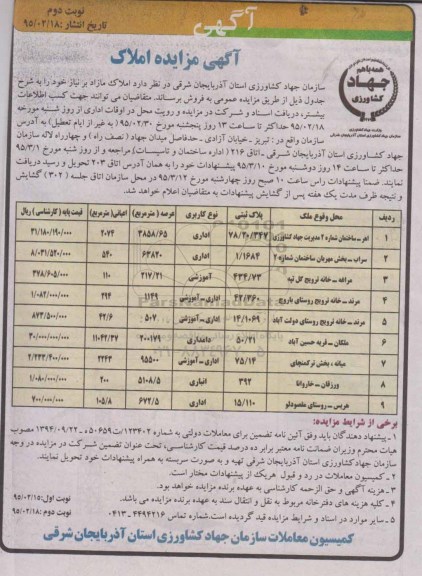 آگهی
نوبت دوم
تاریخ انتشار: ۹۵/۰۲/۱۸
همه با هم
جهاد
کشاورزی
وزارت جهاد کشاورزی
سازمان جهاد کشاورزی استان آذربایجان شرقی
آگهی مزایده املاک
سازمان جهاد کشاورزی استان آذربایجان شرقی در نظر دارد املاک مازاد بر نیاز خود را به شرح
جدول ذیل از طریق مزایده عمومی به فروش برساند. متقاضیان می توانند جهت کسب اطلاعات
بیشتر، دریافت اسناد و شرکت در مزایده و رویت محل در اوقات اداری از روز شنبه مورخه
۹۵/۰۲/۱۸ حداکثر تا ساعت ۱۳ روز پنجشنبه مورخ ۹۵/۰۲/۳۰ (به غیر از ایام تعطیل) به آدرس
سازمان واقع در: تبریز ـ خیابان آزادی ـ حدفاصل میدان جهاد (نصف راه) و چهارراه لاله سازمان
جهاد کشاورزی استان آذربایجان شرقی ـ اتاق ۲۱۶ (اداره ساختمان و تاسیسات) مراجعه و از روز شنبه مورخ ۹۵/۳/۱
حداکثر تا ساعت ۱۴ روز دوشنبه مورخ ۹۵/۳/۱۰ پیشنهادات خود را به همان آدرس اتاق ۲۰۳ تحویل و رسید دریافت
نمایند. ضمنا پیشنهادات راس ساعت ۱۰ صبح روز چهارشنبه مورخ ۹۵/۳/۱۲ در محل سازمان اتاق جلسه (۳۰۲) گشایش
و نتیجه ظرف مدت یک هفته پس از گشایش پیشنهادات به متقاضیان اعلام خواهد شد.
ردیف محل وقوع ملک پلاک ثبتی نوع کاربری عرصه (مترمربع) اعیانی (مترمربع) قیمت پایه (کارشناسی) ریال
۱ اهر ـ ساختمان شماره ۲ مدیریت جهاد کشاورزی ۷۸/۲۰/۳۴۷ اداری ۳۸۵۸/۶۵ ۲۰۷۴ ۳۱/۱۸۰/۱۹۰/۰۰۰
۲ سراب ـ بخش مهربان ساختمان شماره ۲ ۱/۱۶۸۴ اداری ۶۳۸۲۰ ۵۴۰ ۸/۰۳۱/۵۲۰/۰۰۰
۳ مراغه ـ خانه ترویج کل تپه ۴۳۴/۷۳ آموزشی ۲۱۷/۲۱ ۱۱۰ ۳۷۸/۶۰۵/۰۰۰
۴ مرند ـ خانه ترویج روستای یاروج ۴۲/۳۶۰ اداری ـ آموزشی ۱۱۴۹ ۲۹۴ ۱/۰۸۲/۰۰۰/۰۰۰
۵ مرند ـ خانه ترویج روستای دولت آباد ۱۴/۱۰۶۹ اداری ـ آموزشی ۵۰۷ ۴۲/۶ ۸۷۳/۵۰۰/۰۰۰
۶ ملکان ـ قریه حسین آباد ۵۰/۲۱ دامداری ۲۰۰۱۷۹ ۱۱۰۴۲/۳۷ ۲۰/۰۰۰/۰۰۰/۰۰۰
۷ میانه ـ بخش ترکمنچای ۷۵/۱۴ اداری ـ آموزشی ۹۵۵۰۰ ۲۲۴۳ ۲/۲۳۳/۴۰۰/۰۰۰
۸ ورزقان ـ خاروانا ۳۹۲ انباری ۵۱۰۸/۵ ۲۰۰ ۱/۰۸۰/۰۰۰/۰۰۰
۹ هریس ـ روستای مقصودلو ۱۵/۱۱۰ اداری ۶۷۲/۵ ۱۰۵/۸ ۴۰۰/۰۰۰/۰۰۰
برخی از شرایط مزایده:
۱ ـ پیشنهاد دهندگان باید وفق آئین نامه تضمین برای معاملات دولتی به شماره ۱۲۳۴۰۲/ت۵۰۶۵۹ه ـ ۱۳۹۴/۰۹/۲۲ مصوب
هیات محترم وزیران ضمانت نامه معتبر برابر ده درصد قیمت کارشناسی، تحت عنوان تضمین شرکت در مزایده در وجه
سازمان جهاد کشاورزی استان آذربایجان شرقی تهیه و به صورت سربسته به همراه پیشنهادات خود تحویل نمایند.
۲ ـ کمیسیون معاملات در رد و قبول هریک از پیشنهادات مختار است.
۳ ـ هزینه آگهی و حق الزحمه کارشناسی به عهده برنده مزایده خواهد بود.
۴ ـ کلیه هزینه های دفترخانه مربوط به نقل و انتقال سند به عهده برنده مزایده می باشد.
۵ ـ سایر موارد در اسناد و شرایط مزایده قید گردیده است. شماره تماس ۳۴۴۹۴۲۱۶-۰۴۱
نوبت اول: ۹۵/۰۲/۱۵
نوبت دوم: ۹۵/۰۲/۱۸
کمیسیون معاملات سازمان جهاد کشاورزی استان آذربایجان شرقی